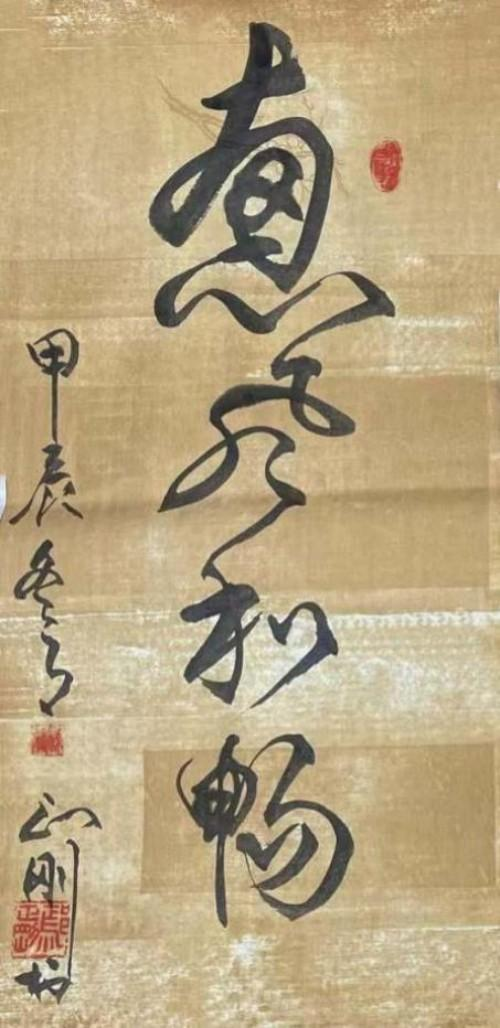 惠风和畅
甲辰冬月
正刚书